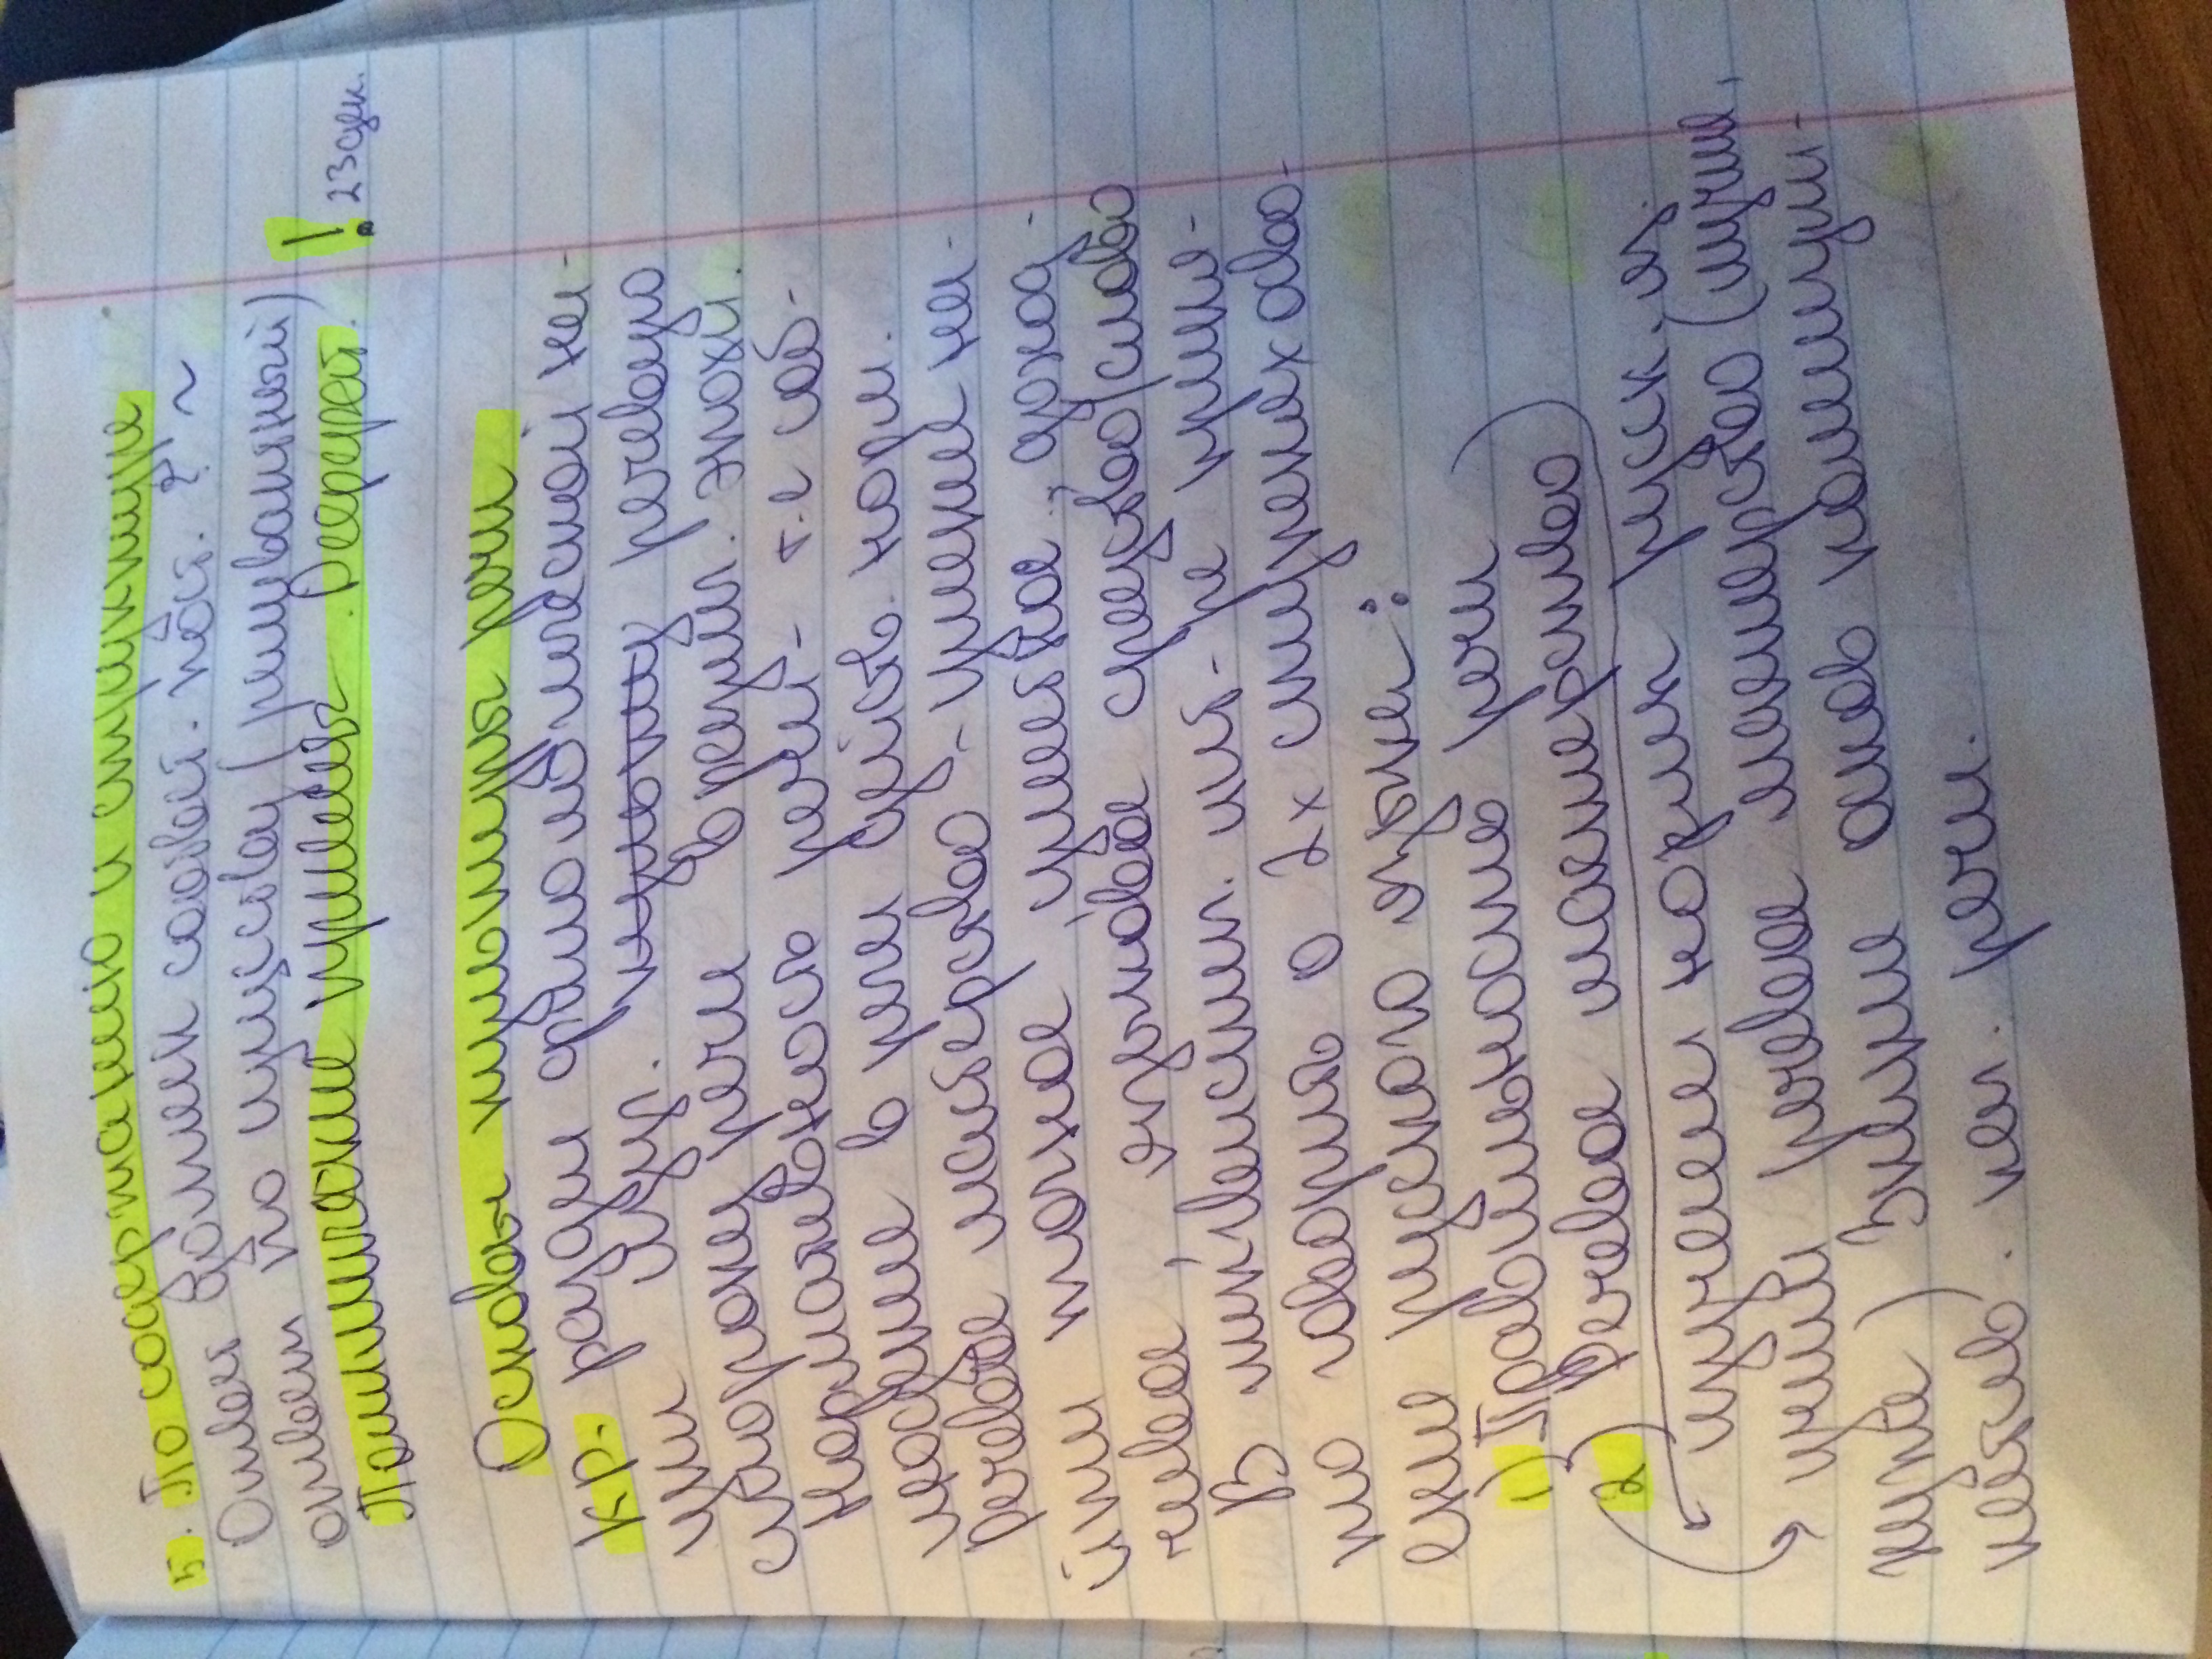 5. По содержанию и структуре
Ответ должен соответ. пост. ? ~
ответ по существу (релевантный)
Полимические приемы. Реферат. ! 23 дек.
Основы культуры речи
КР. раздел филологической на-
уки изуч. культу речевую
сторону речи в различ. эпохи.
Нормативность речи - т.е соб-
людение в речи действ. норм.
Речевое мастерство - умение на-
йти точное, уместное, доход-
чивое, языковое средство/слово
В лингвистич. лит-ре приня-
то говорить о 2х ступенях осво-
ение русского языка:
1) Правильность речи
2) Речевое мастерство)
изучаем нормы русск. яз.
учим речевое мастерство (лучше,
хуже) Знание основ коммуни-
катив. кач. речи.